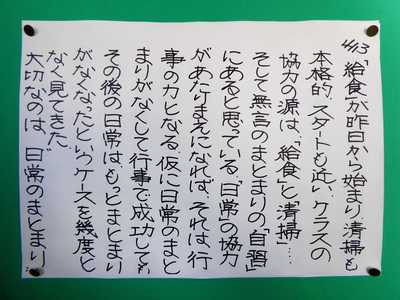 4/13「給食」が昨日から始まり、清掃も
本格的スタートも近い。クラスの
協力の源は、「給食」と「清掃」…。
そして無言のまとまりの「自習」
にあると思っている。「日常」の協力
があたりまえになれば、それは行
事の力となる。仮に日常のまと
まりがなくして行事で成功しても
その後の日常は、もっとまとまり
がなくなったというケースを幾度と
なく見てきた。
大切なのは、日常のまとまり。